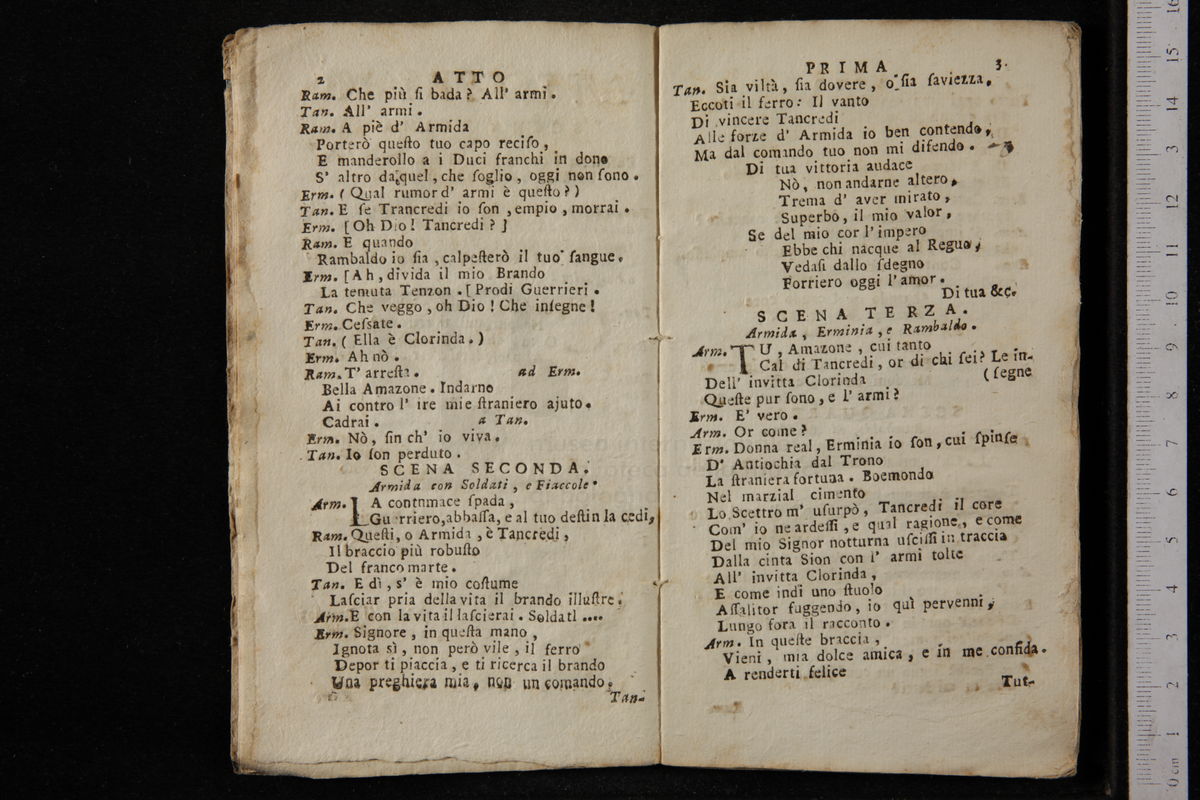 2 ATTO
Ram. Che più ſi bada? All' armi.
Tan. All' armi.
Ram. A piè d' Armida
Porterò queſto tuo capo reciſo,
E manderollo a i Duci franchi in dono
S' altro da quel, che ſoglio, oggi non ſono.
Erm. ( Qual rumor d' armi è queſto? )
Tan. E ſe Trancredi io ſon, empio, morrai.
Erm. [ Oh Dio! Tancredi? ]
Ram. E quando
Rambaldo io ſia, calpeſterò il tuo ſangue.
Erm. [ Ah, divida il mio Brando
La temuta Tenzon. [ Prodi Guerrieri.
Tan. Che veggo, oh Dio! Che inſegne!
Erm. Ceſsate.
Tan. ( Ella è Clorinda. )
Erm. Ah nò.
Ram. T' arreſta. ad Erm.
Bella Amazone. Indarno
Ai contro l' ire mie ſtraniero ajuto.
Cadrai. a Tan.
Erm. Nò, ſin ch' io viva.
Tan. Io ſon perduto.
SCENA SECONDA.
Armida con Soldati, e Fiaccole.
Arm. LA contnmace ſpada,
Gu rriero, abbaſſa, e al tuo deſtin la cedi,
Ram. Queſti, o Armida, è Tancredi,
Il braccio più robuſto
Del franco marte.
Tan. E dì, s' è mio coſtume
Laſciar pria della vita il brando illuſtre.
Arm. E con la vita il laſcierai. Soldatl ....
Erm. Signore, in queſta mano,
Ignota sì, non però vile, il ferro
Depor ti piaccia, e ti ricerca il brando
Una preghiera mia, non un comando.
Tan-
PRIMA. 3
Tan. Sia viltà, ſia dovere, o ſia ſaviezza.
Eccoti il ferro: Il vanto
Di vincere Tancredi
Alle forze d' Armida io ben contendo,
Ma dal comando tuo non mi difendo.
Di tua vittoria audace
Nò, non andarne altero,
Trema d' aver mirato,
Superbo, il mio valor,
Se del mio cor l' impero
Ebbe chi nacque al Regno,
Vedaſi dallo ſdegno
Forriero oggi l' amor.
Di tua &c.
SCENA TERZA.
Armida, Erminia, e Rambaldo.
Arm. TU, Amazone, cui tanto
Cal di Tancredi, or di chi ſei? Le in-
Dell' invitta Clorinda (ſegne
Queſte pur ſono, e l' armi?
Erm. E' vero.
Arm. Or come?
Erm. Donna real, Erminia io ſon, cui ſpinſe
D' Antiochia dal Trono
La ſtraniera fortuna. Boemondo
Nel marzial cimento
Lo Scettro m' uſurpò, Tancredi il core
Com' io ne ardeſſi, e qual ragione, e come
Del mio Signor notturna uſciſſi in traccia
Dalla cinta Sion con l' armi tolte
All' invitta Clorinda,
E come indi uno ſtuolo
Aſſalitor fuggendo, io quì pervenni,
Lungo fora il racconto.
Arm. In queſte braccia,
Vieni, mia dolce amica, e in me confida.
A renderti felice
Tut-
0 cm 1 2 3 4 5 6 7 8 9 10 11 12 13 14 15 16